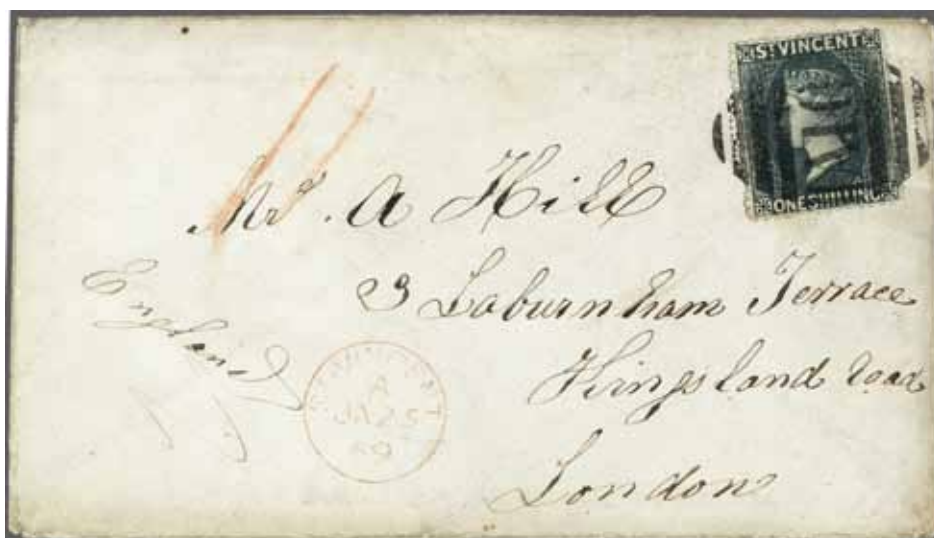 ST VINCENT
A10
ONE SHILLING
11
Mr A Hill
3 Laburnham Terrace
Kingsland Road
London
England
ST VINCENT
A
JA 25
69